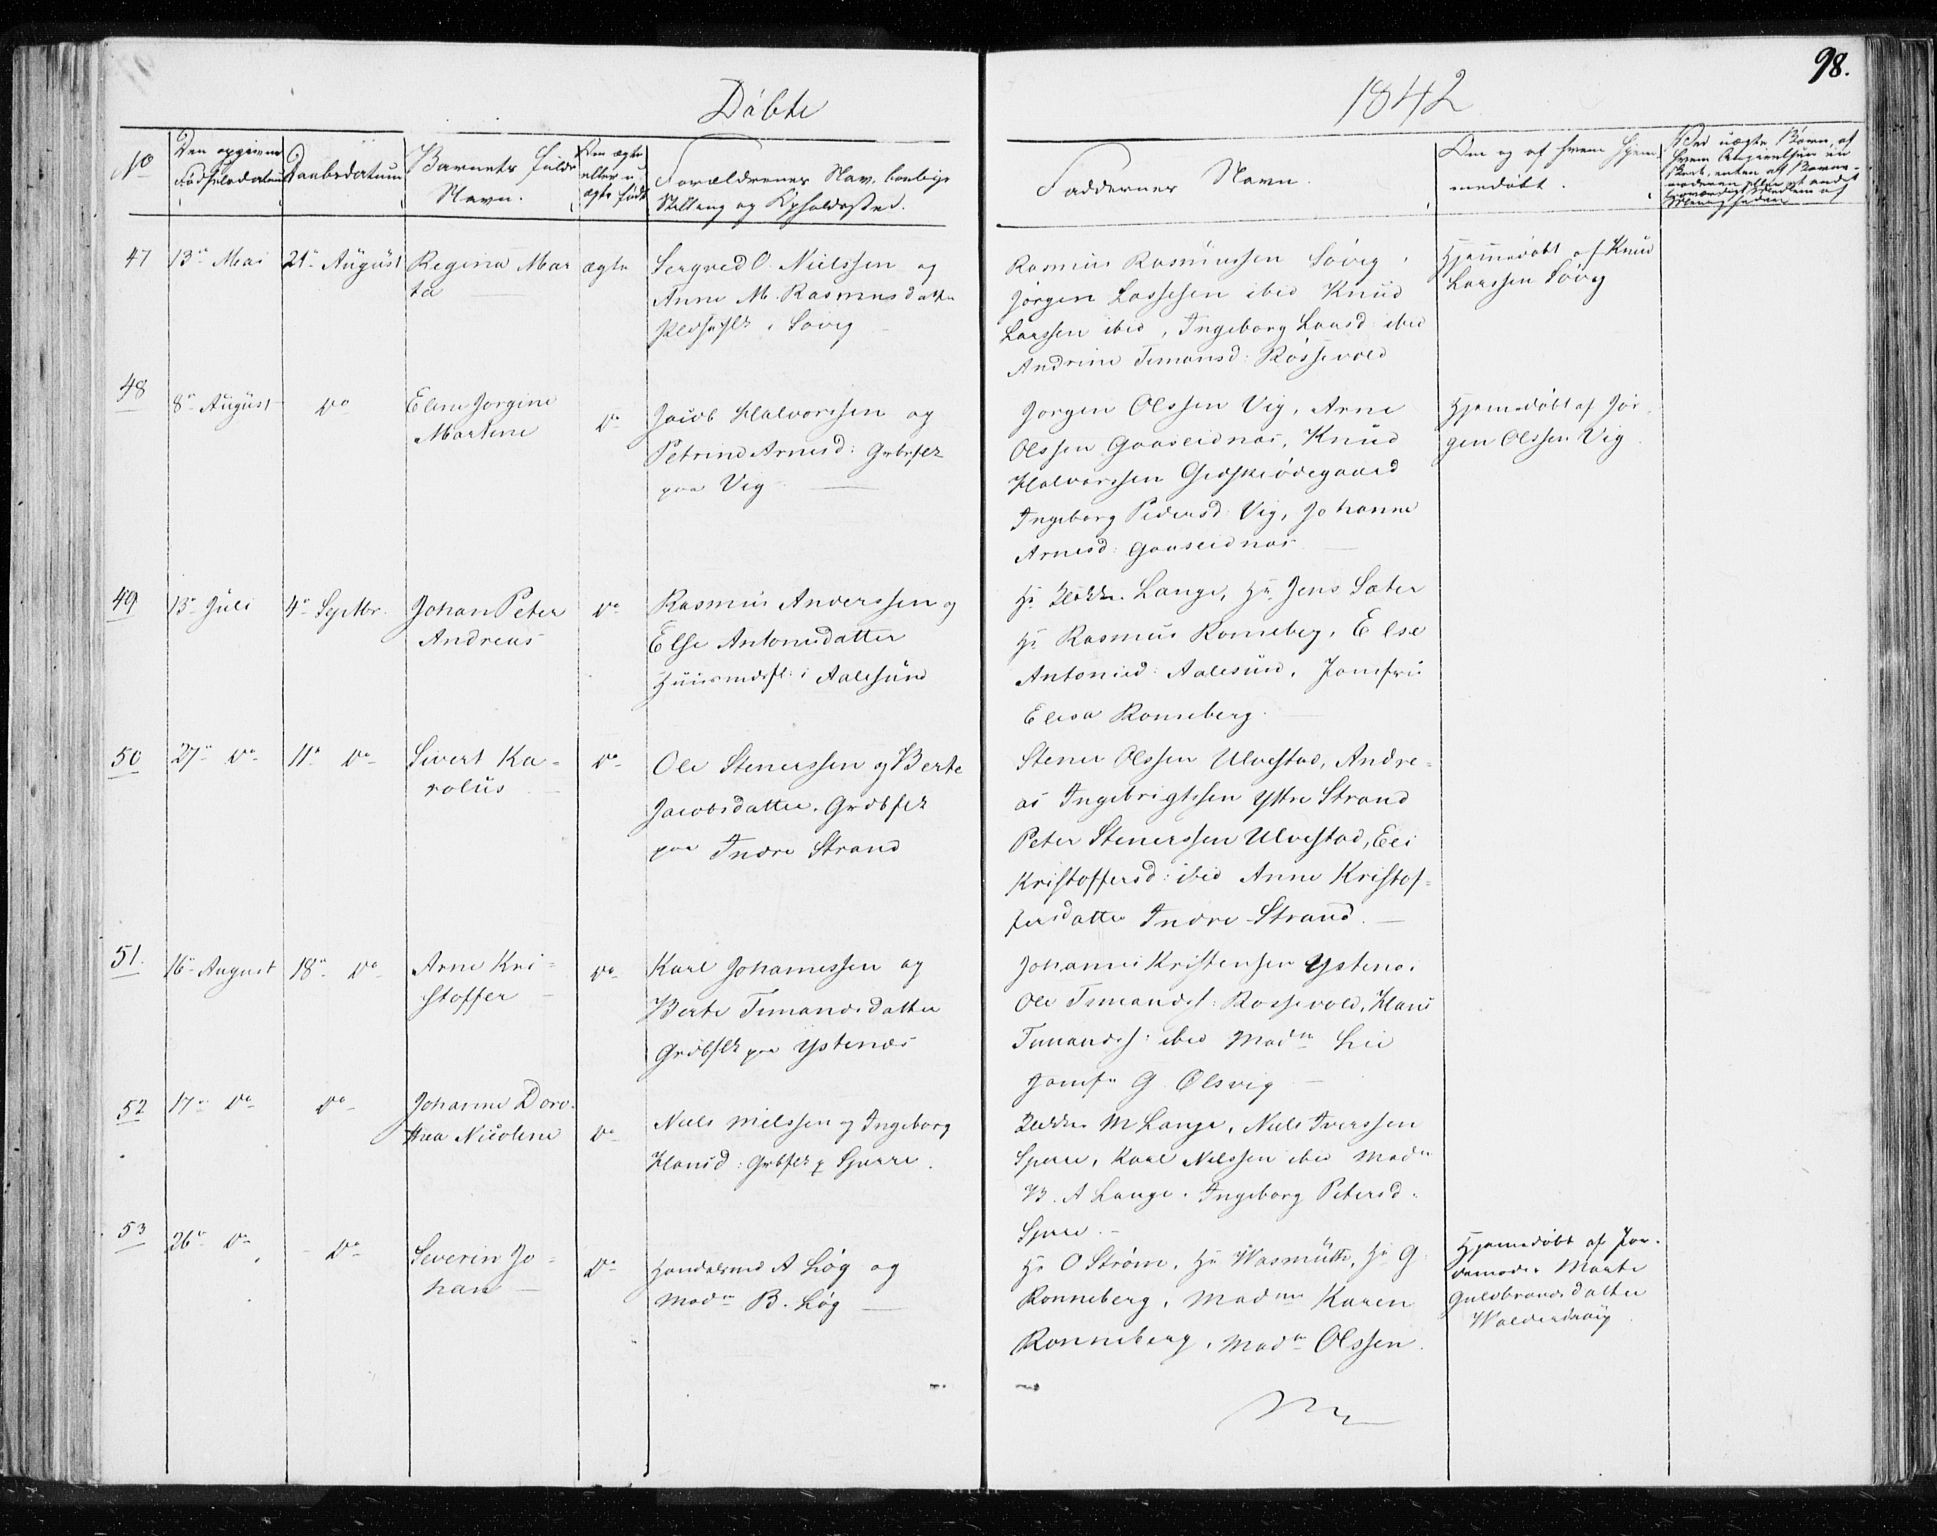 Døbte
1842
98.
No
Den opgivne Fødselsdatum
Daabsdatum
Barnets fulde Navn.
Om ægte eller uægte født
Forældrenes Navn, borgerlige Stilling og Opholdssted.
Faddernes Navn
Om og af hvem hjemmedøbt.
47
13de Mai
21de August
Regina Mar
ta
ægte
Sergved O. Nielssen og
Anne M. Rasmusdatter
i Søvig
Rasmus Rasmussen Søvig,
Jørgen Lassesen ibid Knud
Larssen ibid, Ingeborg Larsd: ibid
Andrine Timansd: Røssevold
Hjemmedøbt af Knud
Larssen Søvig
48
8de August
do
Elene Jorgine
Martine
do
Jacob Halvorssen og
Petrine Arnesd: Grbrflk
paa Vig
Jorgen Olssen Vig, Arne
Olssen Gaaseidnæs, Knud
Halvorssen Gidskeødegaard
Ingeborg Pedersd: Vig, Johanne
Arnesd: Gaaseidnæs
Hjemmedøbt af Jør-
gen Olssen Vig.
49
13de Juli
4de Septbr.
Johan Peter
Andreas
do
Rasmus Anderssen og
Else Antonisdatter
Huusmdsf: i Aalesund
Hr. Klokker Lange, Hr. Jens Sæter
Hr Rasmus Ronneberg, Else
Antonied: Aalesund, Jomfru
Elisa Ronneberg.
50
27de do
11te do
Sivert Ka-
rolus
do
Ole Stenerssen og Berte
Jacobsdatter. Grdbflk
paa Indre Strand
Stener Olssen Ulvestad, Andre-
as Ingebrigtssen Yttre Strand
Peter Stenerssen Ulvestad, Eli
Kristoffersd: ibid Anne Kristof-
fersdatter Indre Strand.
51.
16de August
18de do
Arne Kri-
stoffer
do
Karl Johannessen og
Berte Timandsdatter
Grdbflk paa Ystenæs
Johannes Kristensen Ystenæs
Ole Timandss: Rossevold, Hans
Timandss: ibid Madm Lie
Jomfr G. Olsvig
52
17de do
do
Johanne Doro-
thea Nicoline
do
Niels Nielssen og Ingeborg
Hansd: Grbflk p Sperre.
Klokker M Lange, Niels Iverssen
Sperre, Karl Nilssen ibid Madm
B. A Lange. Ingeborg Petersd.
Sperre.
53
26de do
do
Severin Jo-
han
do
Handelsmd A Løg og
Madm B. Løg
Hr O Strøm, Hr Wasmuth, Hr G
Ronneberg, Madme Karen
Ronneberg, Madm Olssen.
Hjemmedøbt af Jor-
demoder Marte
Guldbrandsdatter
Walderhaug.